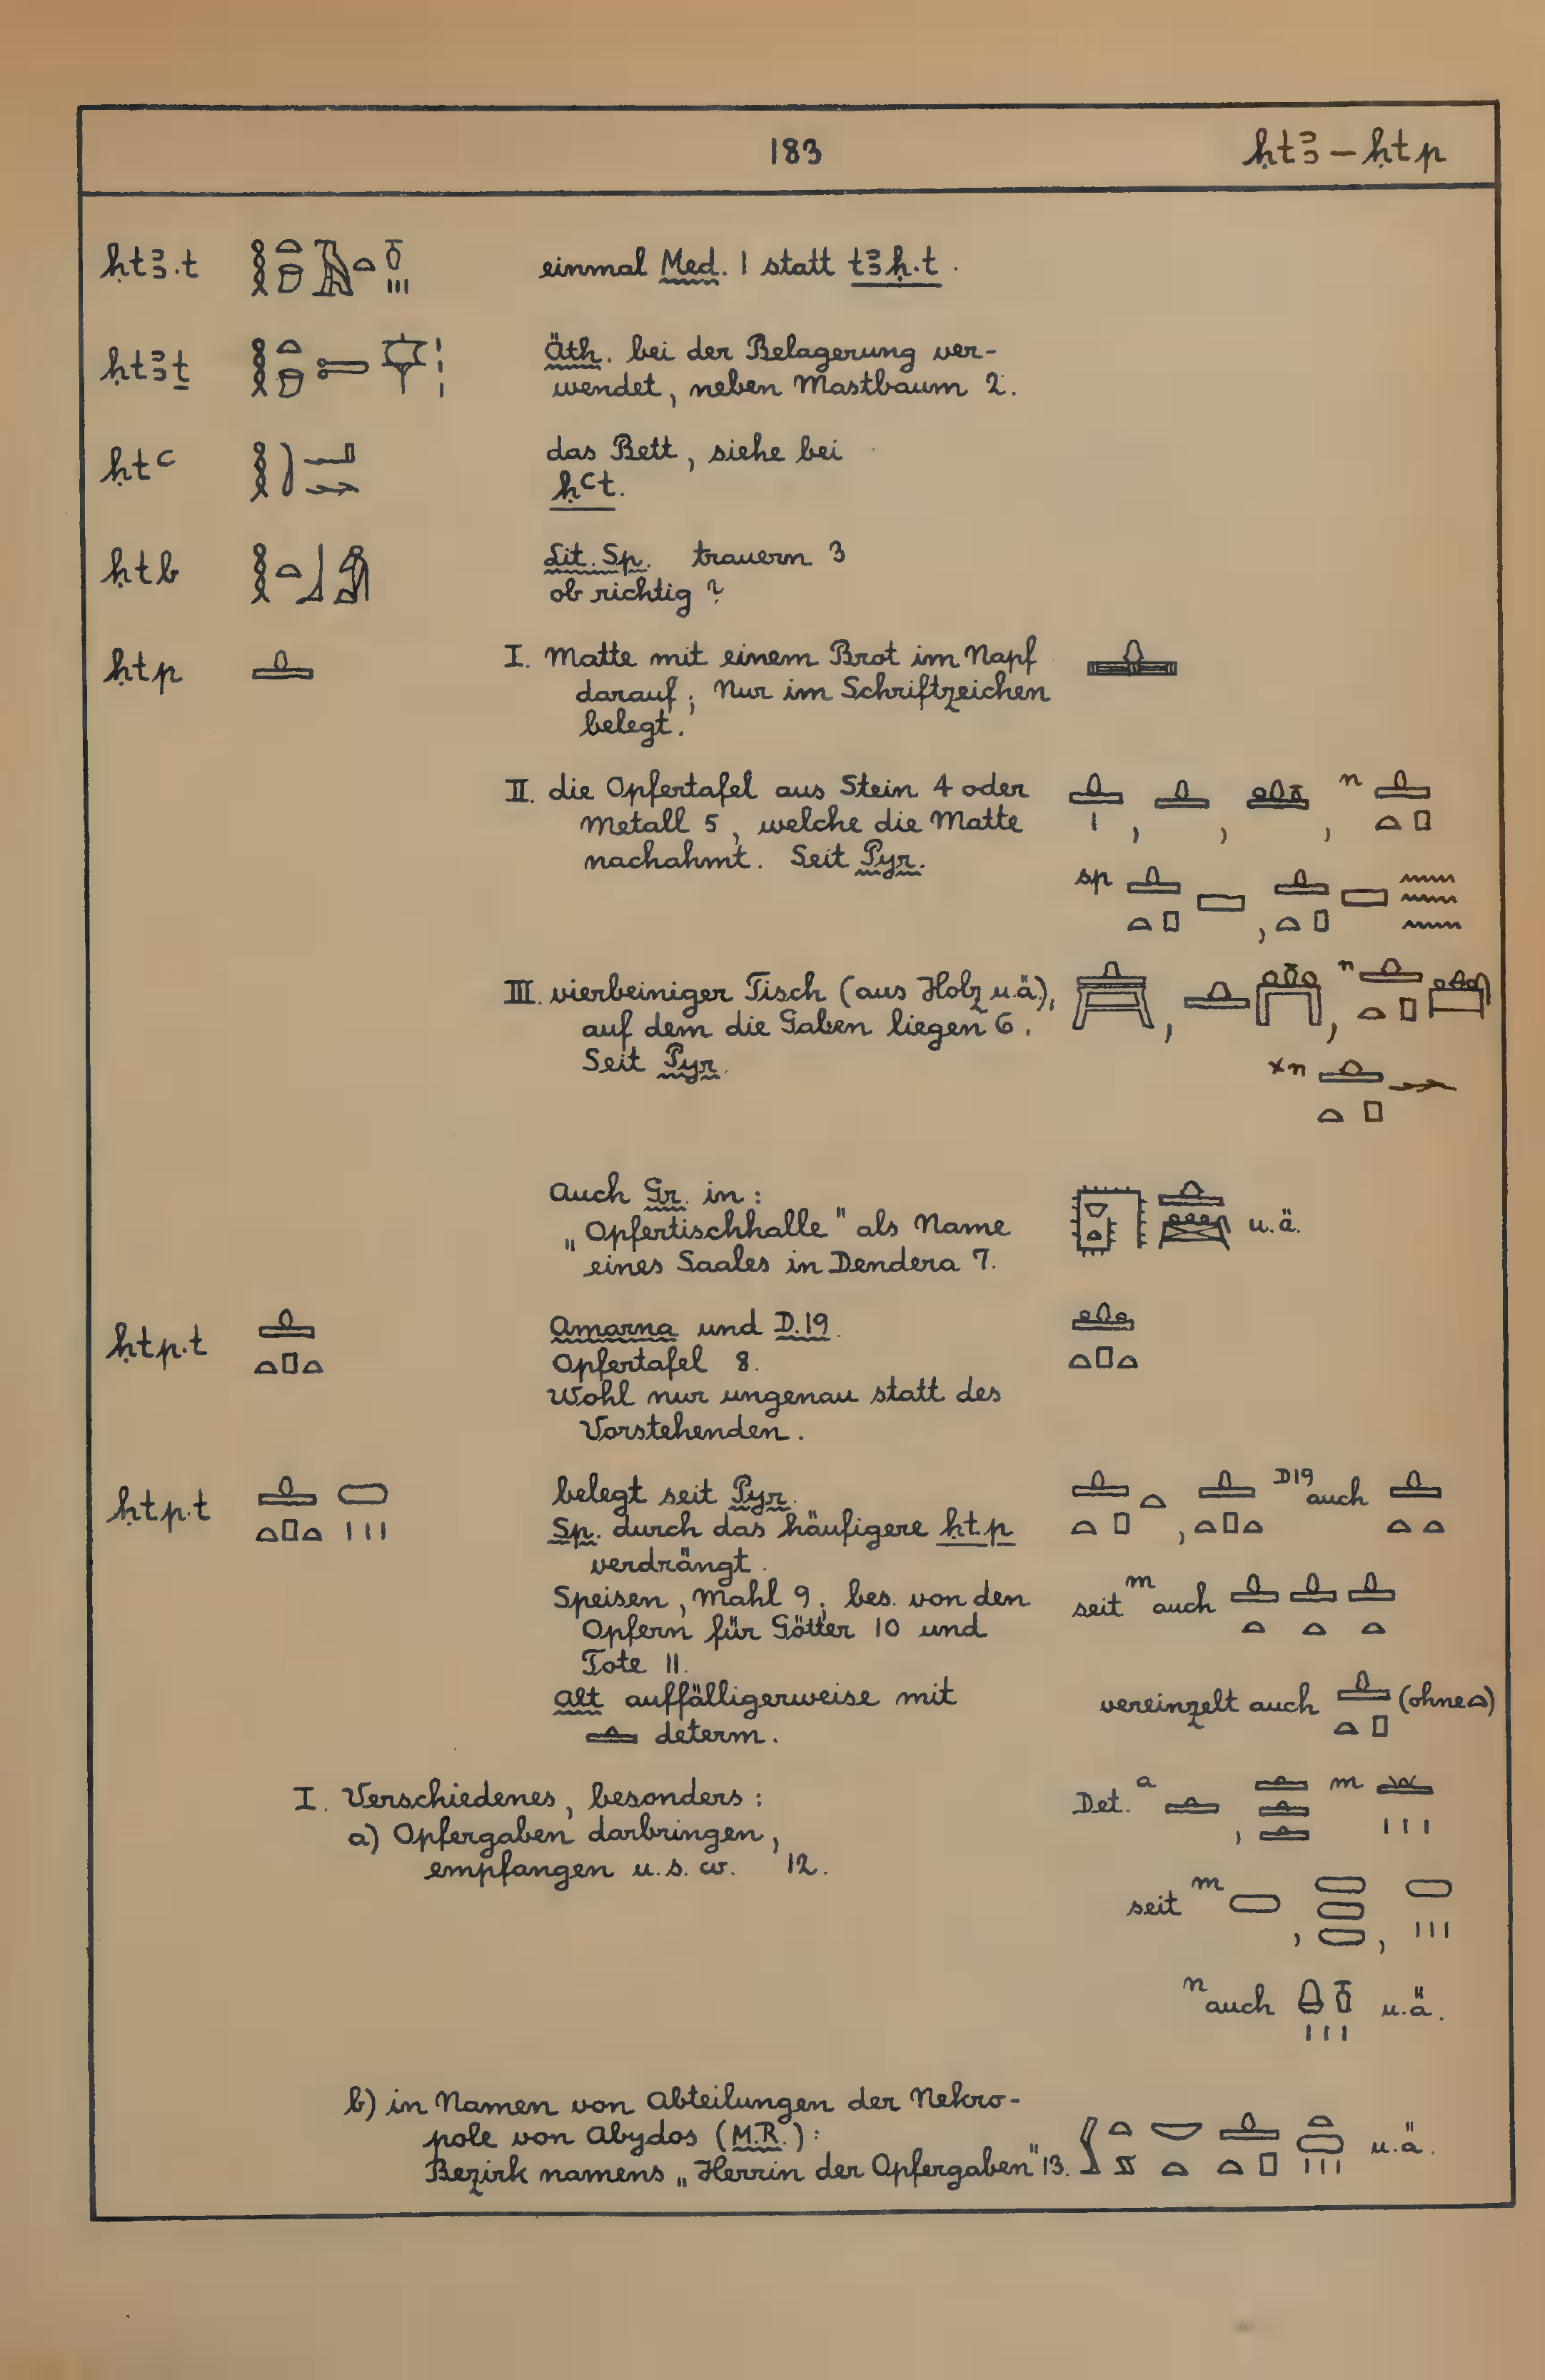 183
ḥtꜣ – ḥtp
ḥtꜣ.t
einmal Med. 1 statt tꜣḥ.t.
ḥtꜣṯ
Äth. bei der Belagerung ver-
wendet, neben Mastbaum 2.
ḥtꜥ
das Bett, siehe bei
ḥꜥt.
ḥtb
Lit. Sp. trauern 3
ob richtig?
ḥtp
I. Matte mit einem Brot im Napf
darauf; Nur im Schriftzeichen
belegt.
II. die Opfertafel aus Stein 4 oder
Metall 5, welche die Matte
nachahmt. Seit Pyr.
n
sp
III. vierbeiniger Tisch (aus Holz u.ä.),
auf dem die Gaben liegen 6.
Seit Pyr.
n
×n
Auch Gr. in:
„Opfertischhalle" als Name
eines Saales in Dendera 7.
u.ä.
ḥtp.t
Amarna und D.19.
Opfertafel 8.
Wohl nur ungenau statt des
Vorstehenden.
ḥtp.t
belegt seit Pyr.
Sp. durch das häufigere ḥtp
verdrängt.
D19 auch
Speisen, Mahl 9; bes. von den
Opfern für Götter 10 und
Tote 11.
seit m auch
Alt auffälligerweise mit
determ.
vereinzelt auch (ohne )
I. Verschiedenes, besonders:
a) Opfergaben darbringen,
empfangen u.s.w. 12.
Det. a , m
seit m , ,
n auch u.ä.
b) in Namen von Abteilungen der Nekro-
pole von Abydos (M.R.):
Bezirk namens „Herrin der Opfergaben" 13. u.ä.